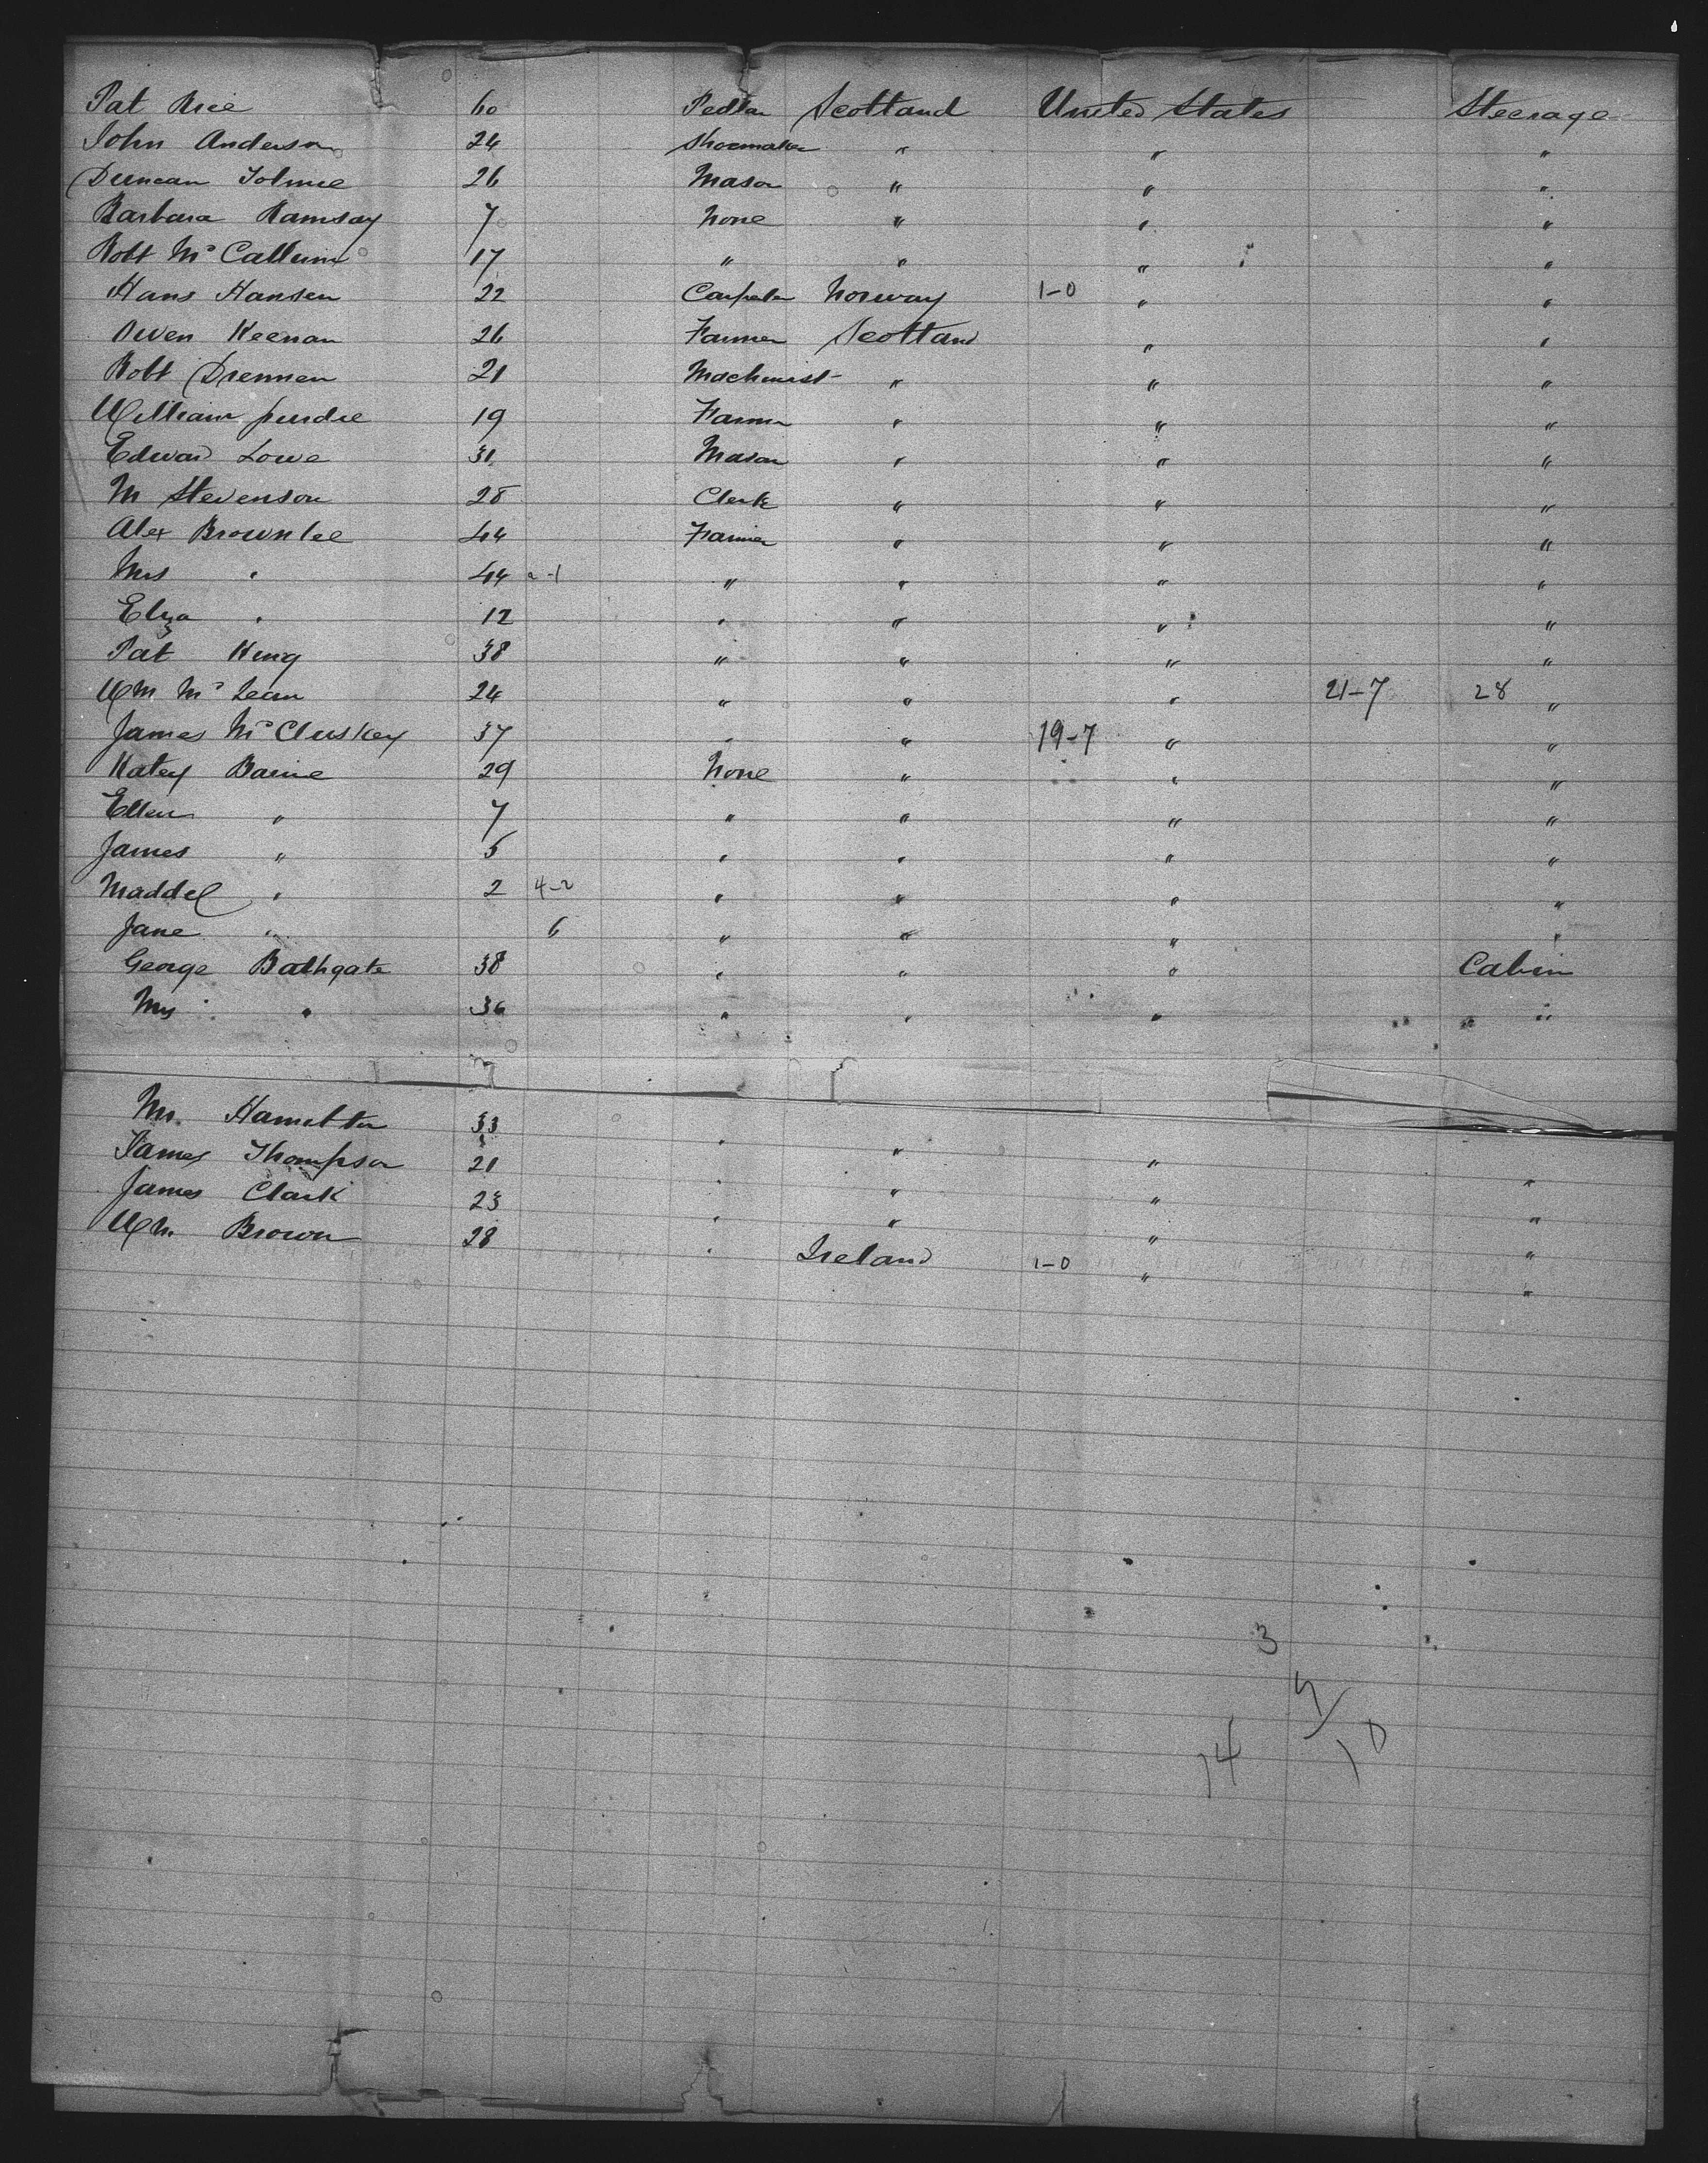 Pat Rice 60 Pedlar Scotland United States Steerage
John Anderson 24 Shoemaker " " "
Duncan Tolmie 26 Mason " " "
Barbara Ramsay 7 None " " "
Robt McCallum 17 " " " "
Hans Hansen 22 Carpenter Norway 1-0 " "
Owen Keenan 26 Farmer Scotland " "
Robt Drennen 21 Machinist " " "
William purdie 19 Farmer " " "
Edward Lowe 31 Mason " " "
M Stevenson 28 Clerk " " "
Alex Brownlee 44 Farmer " " "
Mrs " 44 2-1 " " " "
Eliza " 12 " " " "
Pat King 38 " " " "
Wm McLean 24 " " " 21-7 28 "
James McCluskey 37 " " 19-7 " "
Katey Barrie 29 None " " "
Ellen " 7 " " " "
James " 5 " " " "
Maddel " 2 4-2 " " " "
Jane " 6 " " " "
George Bathgate 38 " " " Cabin
Mrs " 36 " " " "
Mr. Hamilton 33 " " " "
James Thompson 21 " " " "
James Clark 23 " " " "
Wm. Brown 28 " Ireland 1-0 " "
3
4/10
14